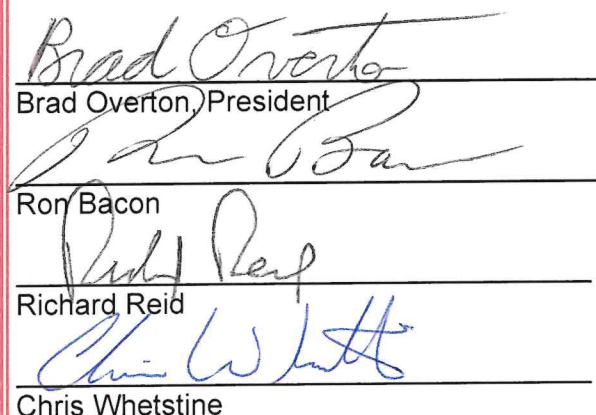 Brad Overton
Brad Overton, President
Ron Bacon
Ron Bacon
Richard Reid
Richard Reid
Chris Whetstine